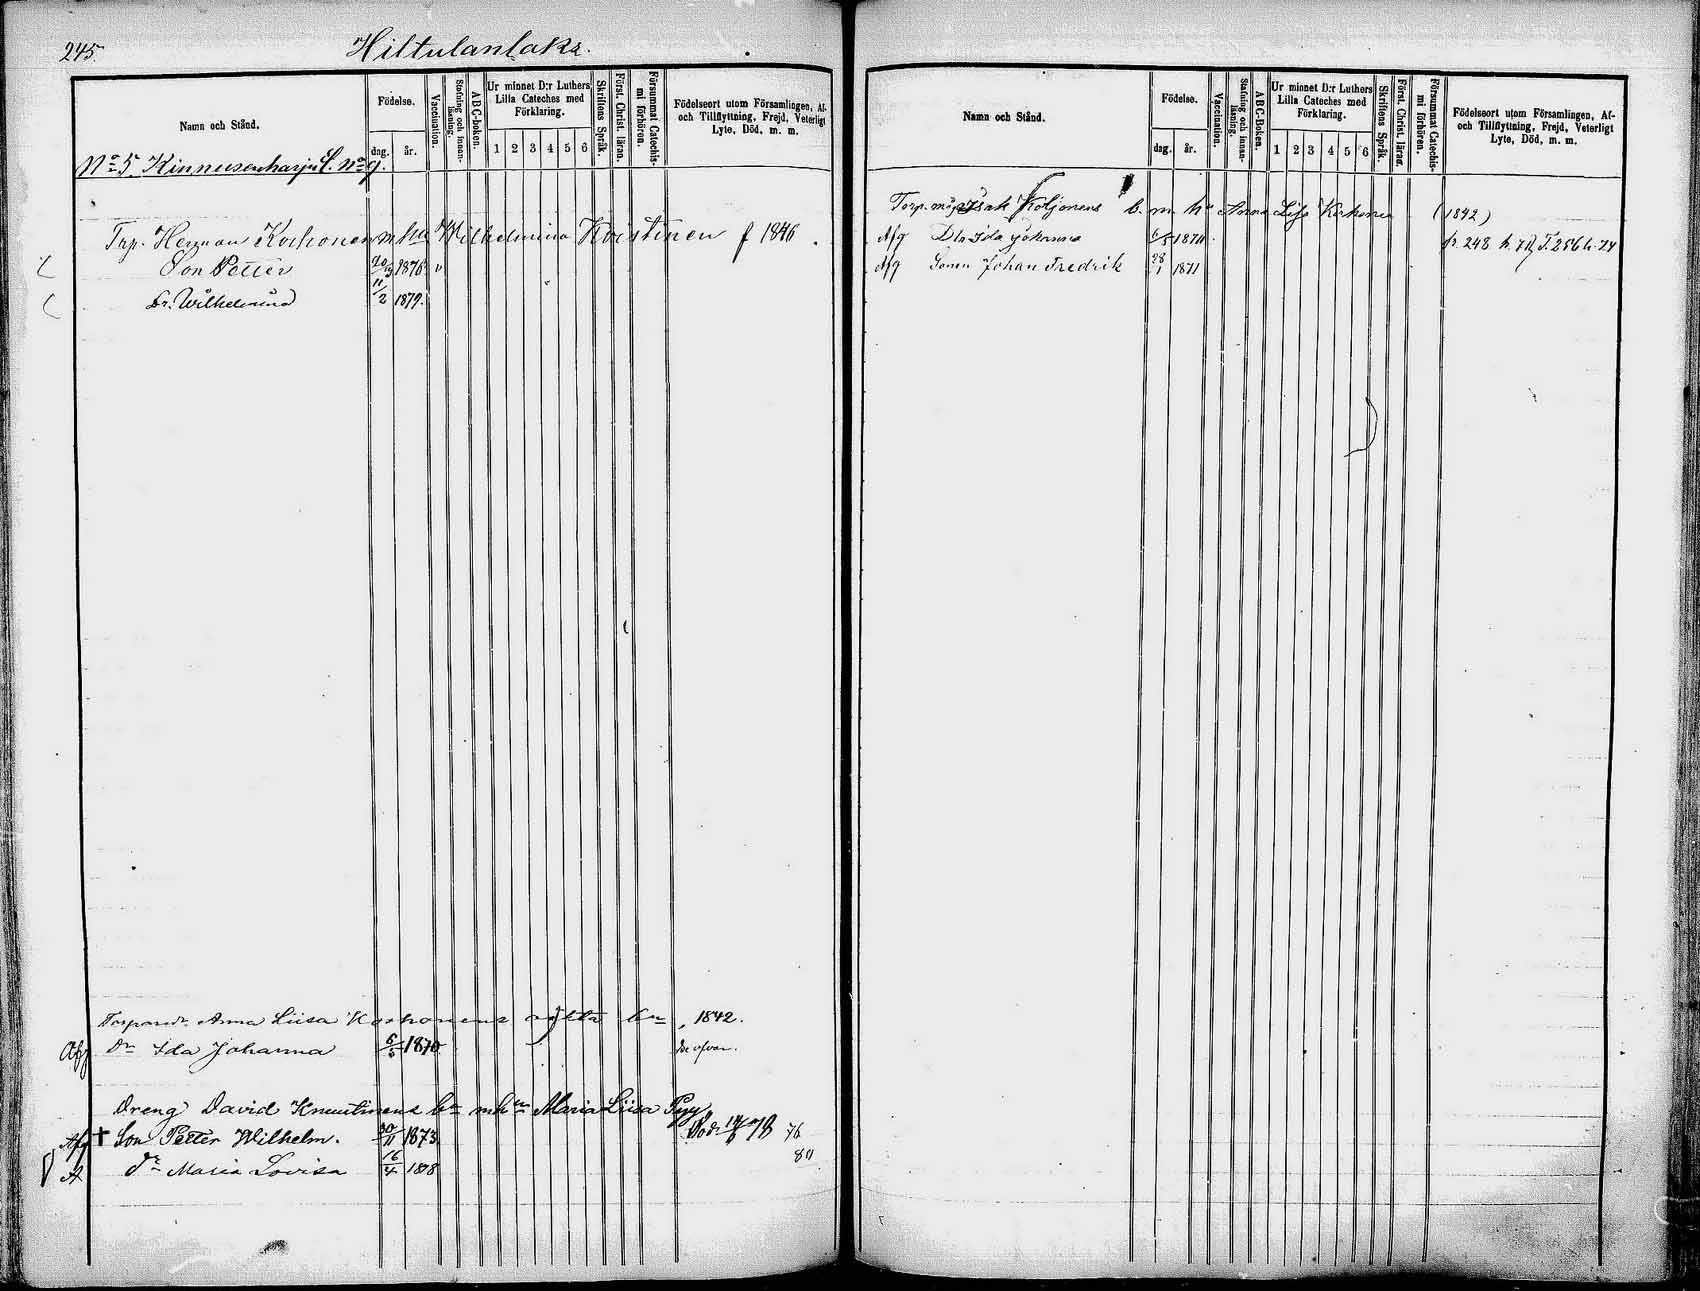 245.
Hiltulanlaks.
Namn och Stånd.
Födelse.
dag.
år.
Vaccination.
Stafning och innanläsning.
ABC-boken.
Ur minnet D:r Luthers Lilla Cateches med Förklaring.
1 2 3 4 5 6
Skriftens Språk.
Först. Christ. läran.
Försummat Catechismi förhören.
Födelseort utom Församlingen, Af- och Tillflyttning, Frejd, Veterligt Lyte, Död, m. m.
No 5. Kinnusenharju L. No 9.
Torp. Herman Korhonen m hu Wilhelmina Koistinen f 1846.
Son Petter 1876 "
Dr. Wilhelmina 11/2 1879.
Torparedr. Anna Liisa Korhonens bn , 1842.
Afg Dr Ida Johanna 6/5 1870
Dreng David Knuutinens bn m hn Maria Liisa Pyy
Afg † Son Petter Wilhelm. 30/11 1873. Död 78 76
A dr Maria Lovisa 16/4 1878 80
Namn och Stånd.
Födelse.
dag.
år.
Vaccination.
Stafning och innanläsning.
ABC-Boken.
Ur minnet D:r Luthers Lilla Cateches med Förklaring.
1 2 3 4 5 6
Skriftens Språk.
Först. Christ. läran.
Försummat Catechismi förhören.
Födelseort utom Församlingen, Af- och Tillflyttning, Frejd, Veterligt Lyte, Död, m. m.
Torp. måg Isak Koljonens b. m. h. Anna Lisa Korhonen (1842)
Afg Dtr Ida Johanna 6/5 1870.
Afg Sonen Johan Fredrik 28/1 1871